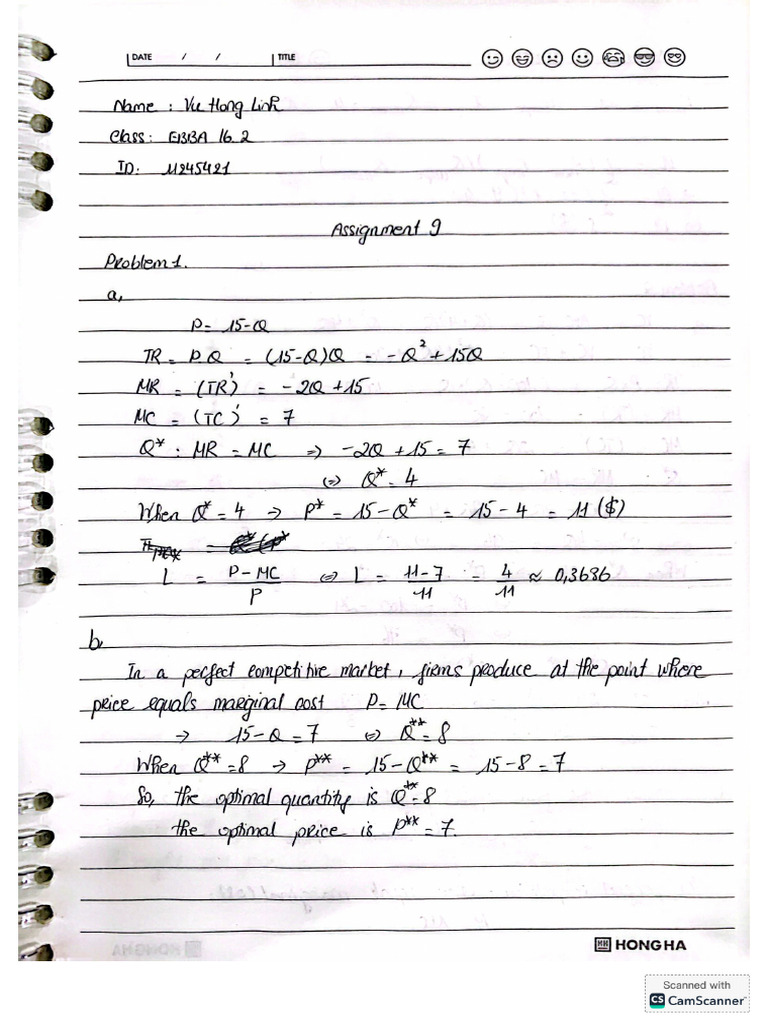 DATE / / TITLE
Name : Vu Hong Linh
Class: EBBA 16.2
ID: 11245421
Assignment 9
Problem 1.
a,
P = 15-Q
TR = P.Q = (15-Q)Q = -Q² + 15Q
MR = (TR)' = -2Q + 15
MC = (TC)' = 7
Q* : MR = MC => -2Q + 15 = 7
<=> Q* = 4
When Q* = 4 → P* = 15 - Q* = 15 - 4 = 11 ($)
L = P - MC / P <=> L = 11-7 / 11 = 4 / 11 ≈ 0,3636
b,
In a perfect competitive market, firms produce at the point where
price equals marginal cost P = MC
→ 15 - Q = 7 <=> Q** = 8
When Q** = 8 → P** = 15 - Q** = 15 - 8 = 7
So, the optimal quantity is Q** = 8
the optimal price is P** = 7.
HONG HA
Scanned with
CS CamScanner